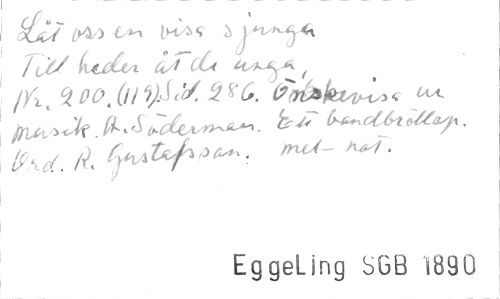 Låt oss en visa sjunga
Till heder åt de unga,
Nr. 200. (119) Sid. 286. Önskevisa ur
musik. A. Söderman. Ett bondbröllop.
Ord. R. Gustafsson. mel- not.
EggeLing SGB 1890